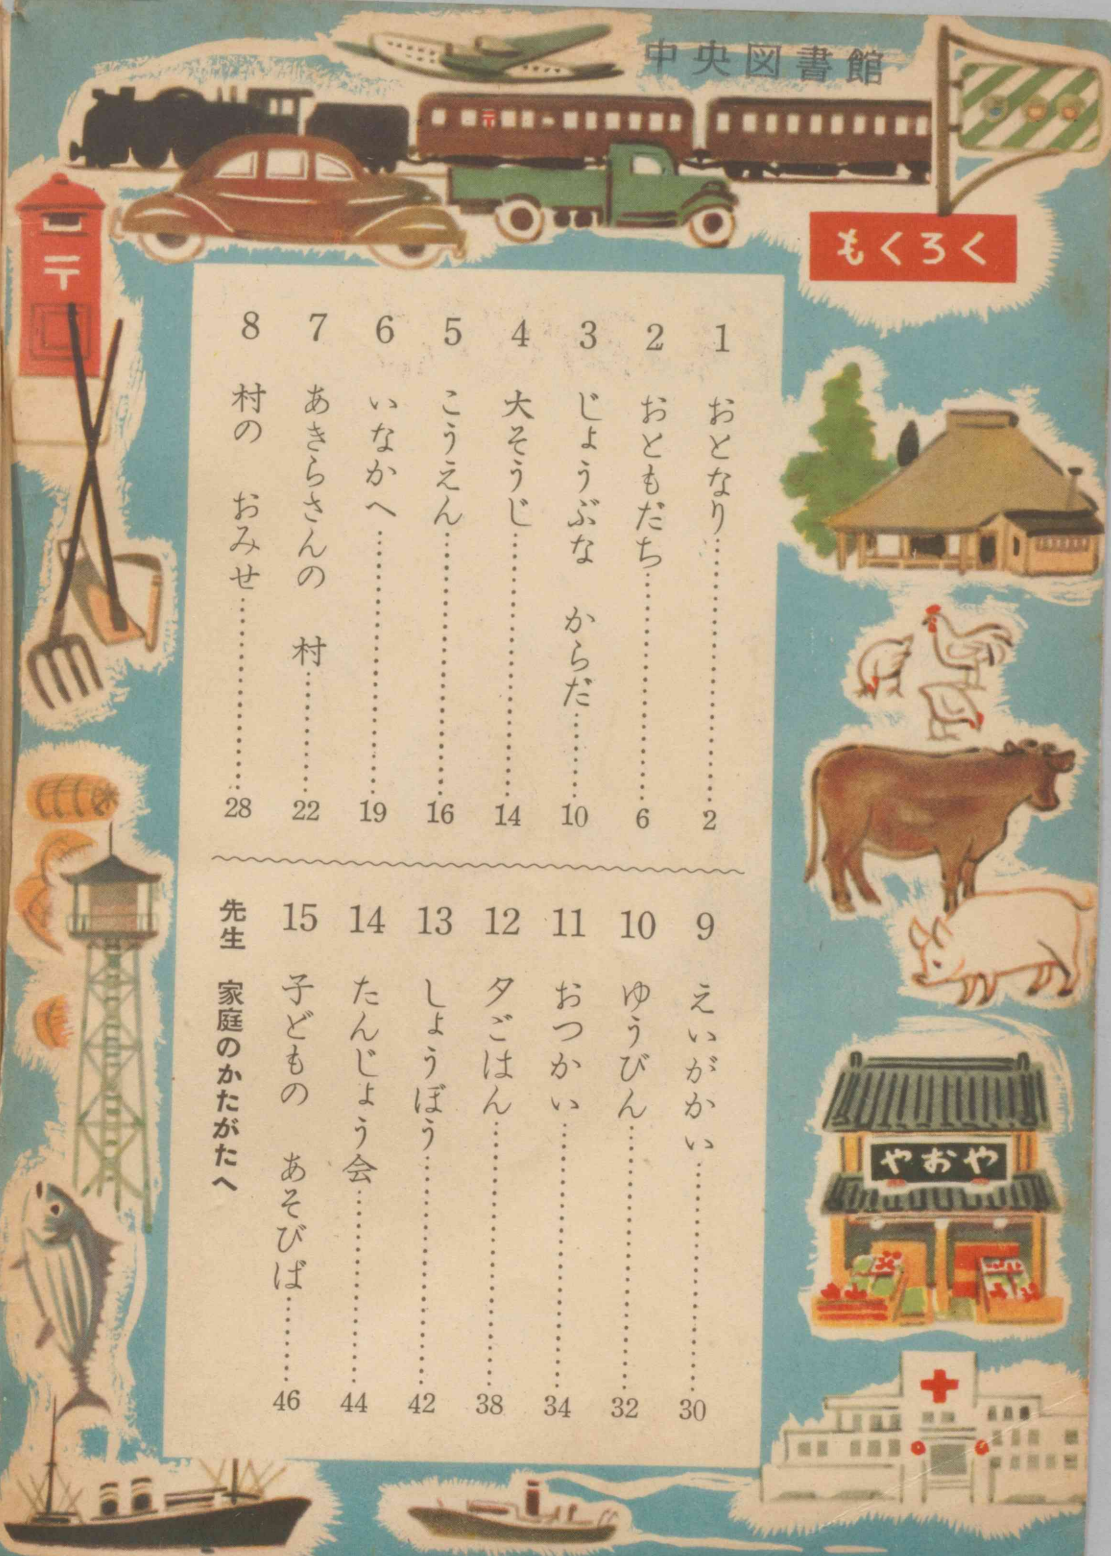 中央図書館
もくろく
1 おとなり 2
2 おともだち 6
3 じょうぶな からだ 10
4 大そうじ 14
5 こうえん 16
6 いなかへ 19
7 あきらさんの 村 22
8 村の おみせ 28
9 えいがかい 30
10 ゆうびん 32
11 おつかい 34
12 夕ごはん 38
13 しょうぼう 42
14 たんじょう会 44
15 子どもの あそびば 46
先生 家庭のかたがたへ
やおや
〒
〒